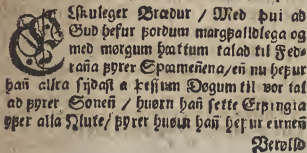 ELskuleger Brædur / Med þui ad
Gud hefur fordum margfalldlega og
med mørgum hættum talad til Fed-
rañа fyrer Spꜳmeñena / eñ nu hefur
hañ allra sijdast a þessum Døgum til vor tal
ad fyrer Soneñ / huørn hañ sette Erfingia
yfer alla Hlute / fyrer huørn hañ hefur eirneñ
Verollд